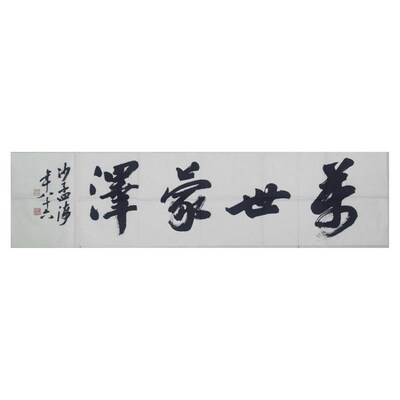 萬世蒙澤
沙孟海
年八十六